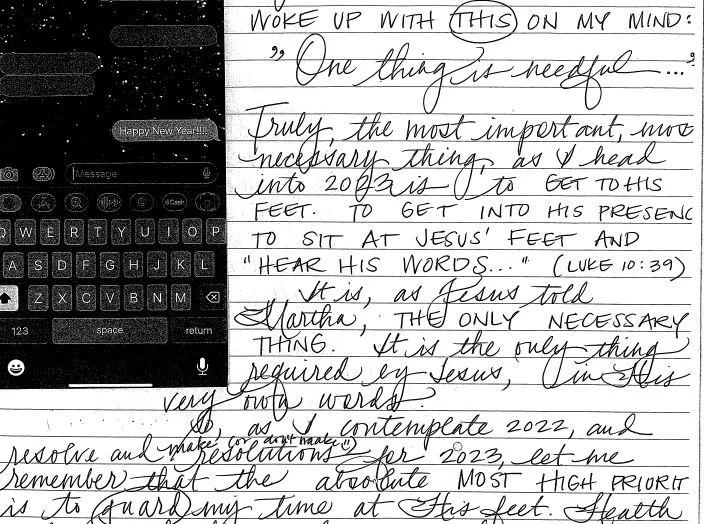 Happy New Year!!!!
Message
Cash
Q W E R T Y U I O P
A S D F G H J K L
Z X C V B N M
123 space return
WOKE UP WITH THIS ON MY MIND:
"One thing is needful..."
Truly, the most important, most
necessary thing, as I head
into 2023 is to GET TO HIS
FEET. TO GET INTO HIS PRESENC
TO SIT AT JESUS' FEET AND
"HEAR HIS WORDS..." (LUKE 10:39)
It is, as Jesus told
Martha, THE ONLY NECESSARY
THING. It is the only thing
required by Jesus, in His
very own words.
So, as I contemplate 2022, and
make (or don't make!)
resolve and resolutions for 2023, let me
remember that the absolute MOST HIGH PRIORIT
is to guard my time at His feet. Health